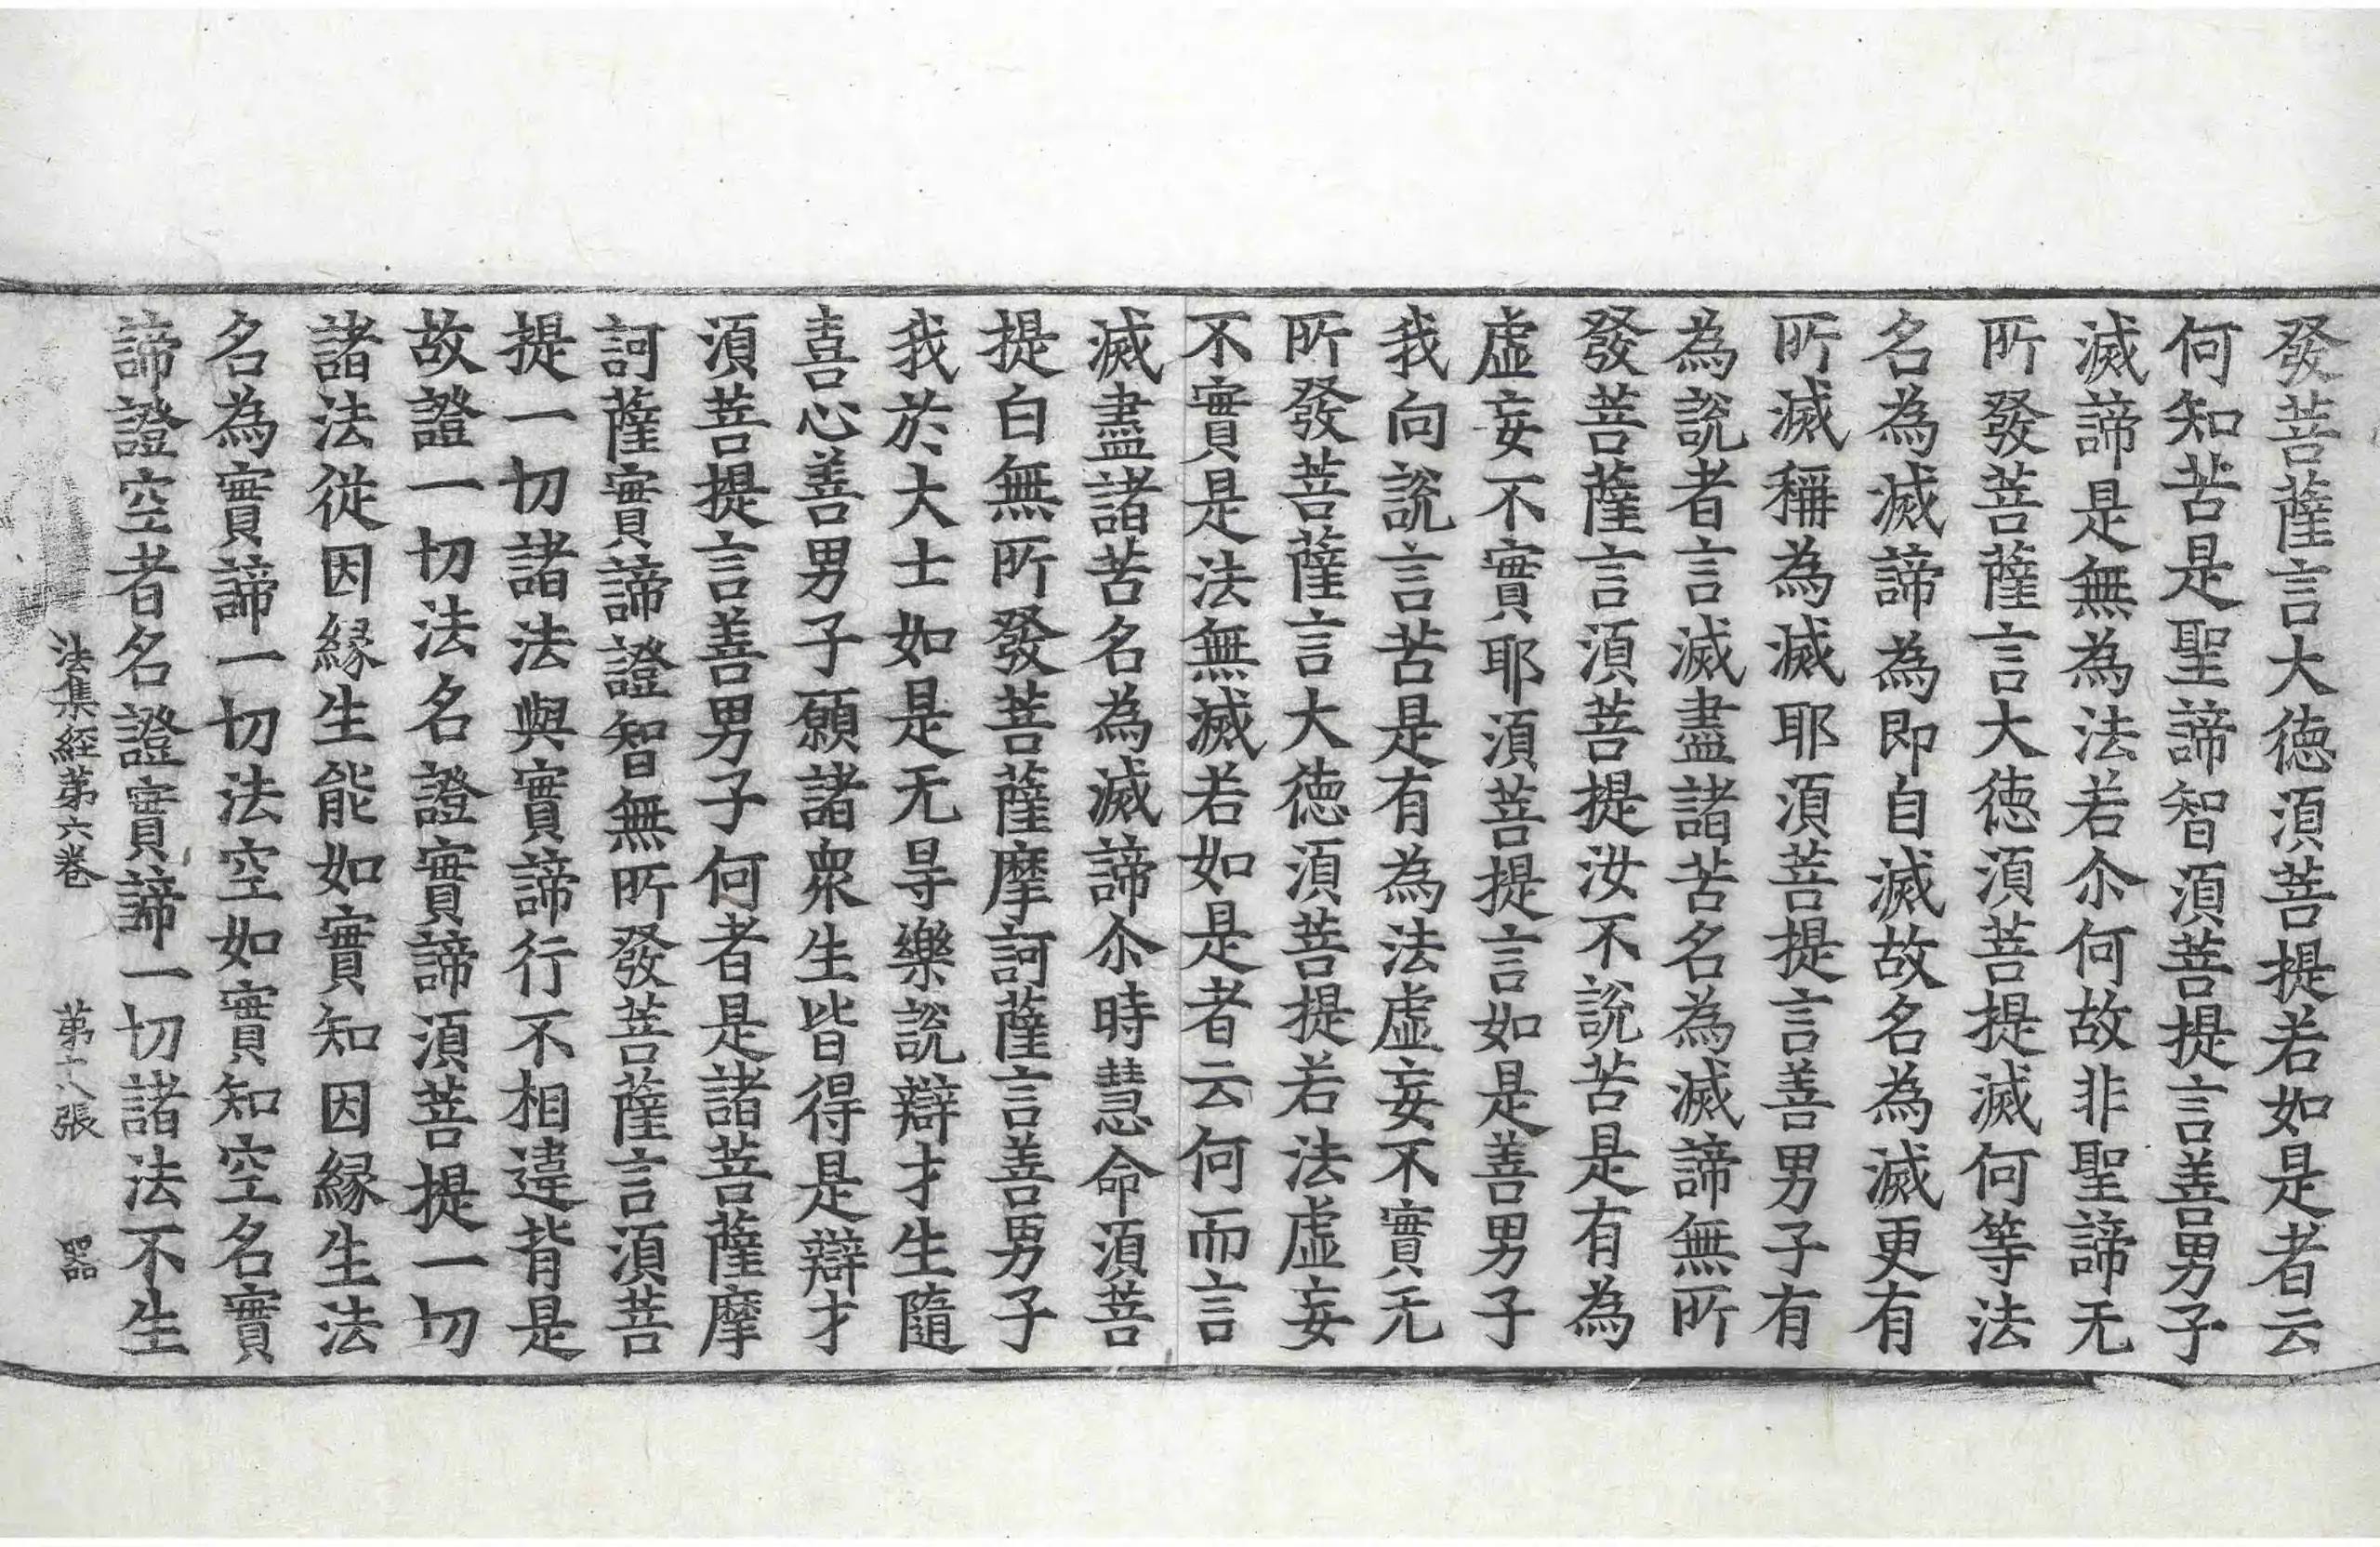 發菩薩言大徳湏菩提若如是者云
何知苦是聖諦智湏菩提言善男子
滅諦是無為法若尒何故非聖諦无
所發菩薩言大徳湏菩提滅何等法
名為滅諦為即自滅故名為滅更有
所滅稱為滅耶湏菩提言善男子有
為說者言滅盡諸苦名為滅諦無所
發菩薩言湏菩提汝不說苦是有為
虛妄不實耶湏菩提言如是善男子
我向說言苦是有為法虛妄不實无
所發菩薩言大徳湏菩提若法虛妄
不實是法無滅若如是者云何而言
滅盡諸苦名為滅諦尒時慧命湏菩
提白無所發菩薩摩訶薩言善男子
我於大士如是无㝵樂說辯才生隨
喜心善男子願諸衆生皆得是辯才
湏菩提言善男子何者是諸菩薩摩
訶薩實諦證智無所發菩薩言湏菩
提一切諸法與實諦行不相違背是
故證一切法名證實諦湏菩提一切
諸法從因緣生能如實知因緣生法
名為實諦一切法空如實知空名實
諦證空者名證實諦一切諸法不生
法集經第六卷 第十八張 器